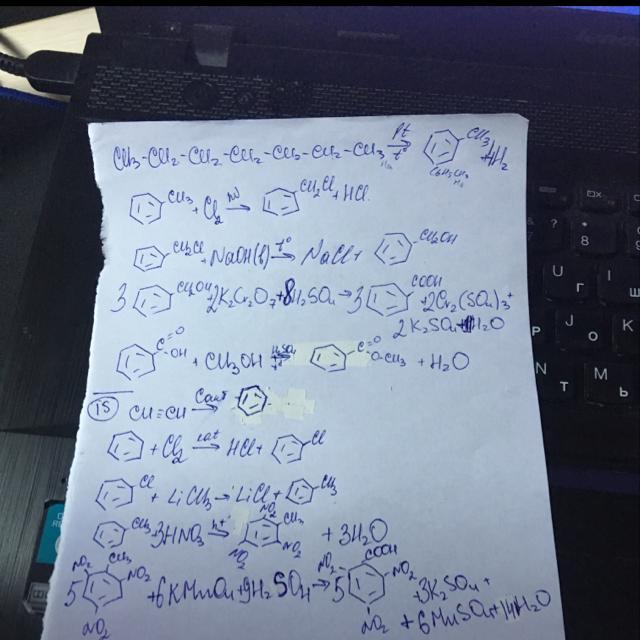 CH3-CH2-CH2-CH2-CH2-CH2-CH3 Pt t° CH3 4H2
C6H5CH3
CH3 + Cl2 hν CH2Cl + HCl
CH2Cl + NaOH(в) t° NaCl + CH2OH
3 CH2OH 2K2Cr2O7 + 8H2SO4 → 3 COOH + 2Cr2(SO4)3 +
2K2SO4 H2O
C=O -OH + CH3OH H2SO4 t° C=O O-CH3 + H2O
15 CH≡CH Cакт
+ Cl2 кат HCl + Cl
Cl + LiCH3 → LiCl + CH3
CH3 + 3HNO3 NO2 CH3 NO2 NO2 + 3H2O
5 NO2 CH3 NO2 NO2 + 6KMnO4 + 9H2SO4 → 5 NO2 COOH NO2 NO2 + 3K2SO4 +
+ 6MnSO4 + 14H2O
? /
*
8
U Г
I Ш
J О
K
N Т
M Ь